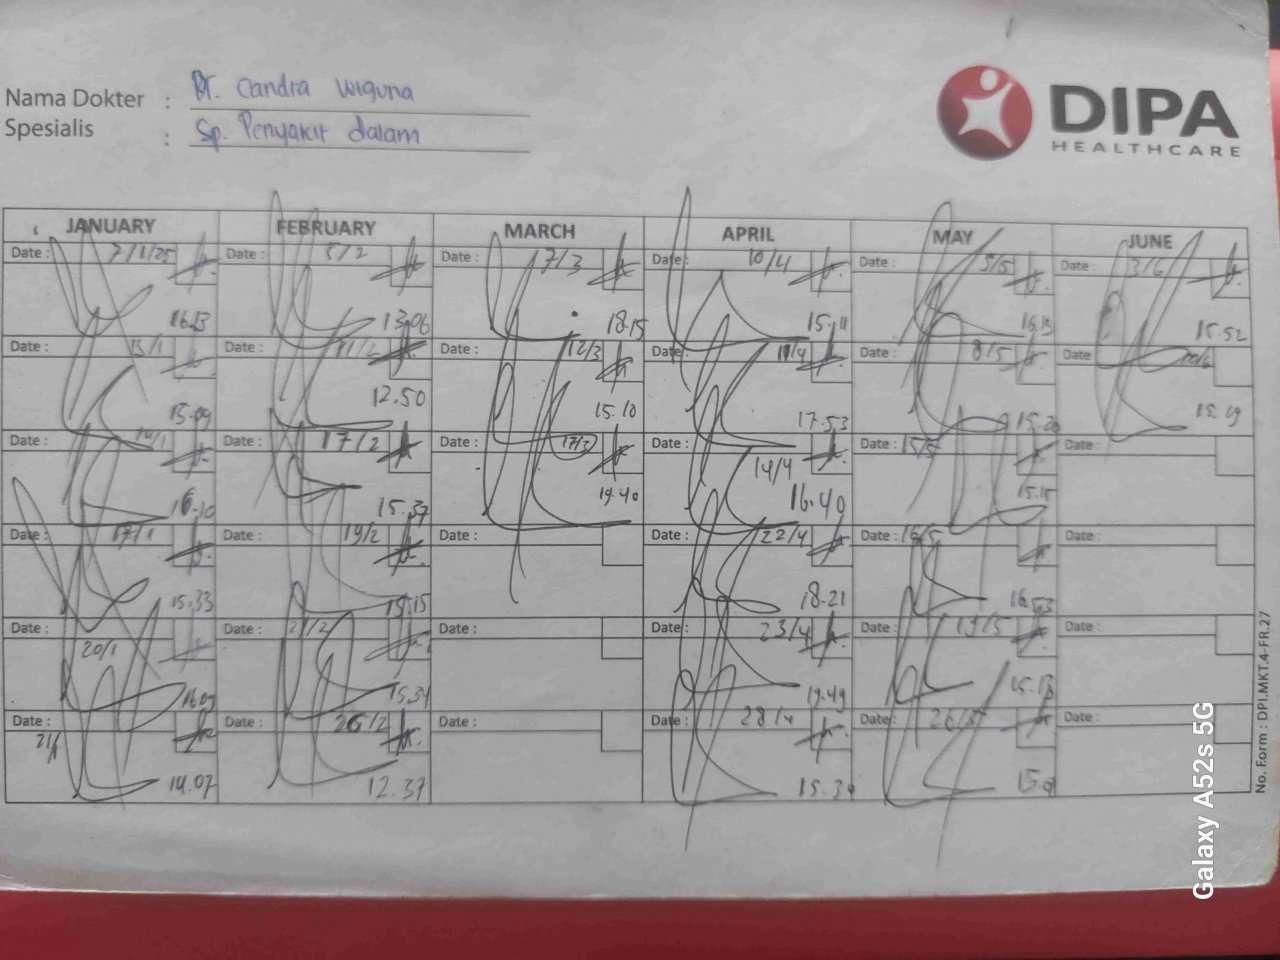 Nama Dokter : Dr. Candra Wiguna
Spesialis : Sp. Penyakit dalam
DIPA
HEALTHCARE
JANUARY FEBRUARY MARCH APRIL MAY JUNE
Date : 7/1/25 Date : 5/2 Date : 7/3 Date : 10/4 Date : 5/5 Date : 3/6
16.13 13.06 18.15 15.11 16.15 15.52
Date : 13/1 Date : 11/2 Date : 12/3 Date : 11/4 Date : 8/5 Date : 10/6
15.09 12.50 15.10 17.53 15.20 15.19
Date : 14/1 Date : 17/2 Date : 17/3 Date : 14/4 Date : 15/5 Date :
16.10 15.37 19.40 16.40 15.15
Date : 17/1 Date : 19/2 Date : Date : 22/4 Date : 16/5 Date :
15.33 15.15 18.21 16.53
Date : 20/1 Date : Date : Date : 23/4 Date : 19/5 Date :
16.09 15.34 19.49 15.13
Date : 21/1 Date : 26/2 Date : Date : 28/4 Date : 26/5 Date :
14.07 12.37
No. Form : DPI.MKT.4-FR.27
Galaxy A52s 5G